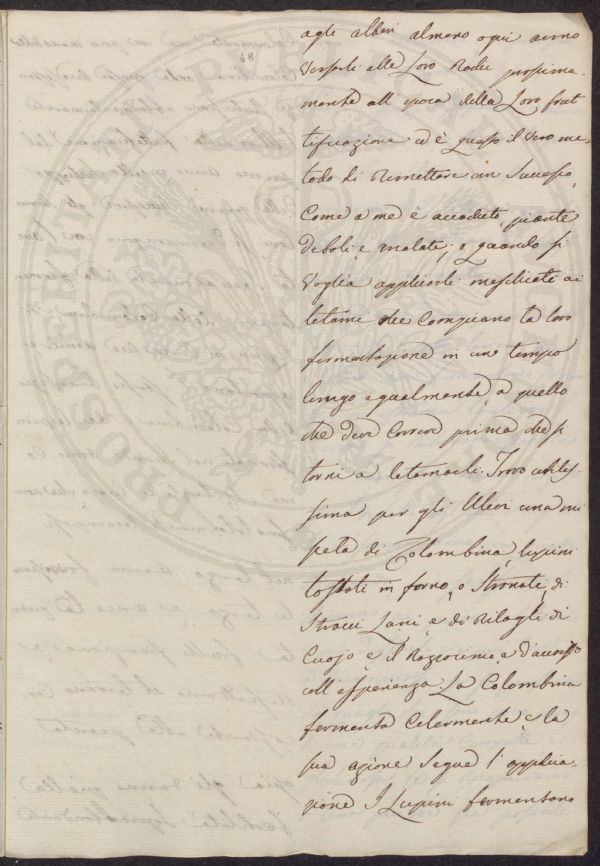 48
agli alberi almeno ogni anno
versarli alle Loro Radici prossima
mente all'epoca della Loro frut
tificazione ed è questo il vero me
todo di Rimettere in Successo,
Come a me è accaduto, piante
deboli e malate; o quando si
Voglia applicarli meschiati ai
letami che Compiano la loro
fermentazione in un tempo
lungo egualmente, a quello
che deve Correre prima che si
torni a letamarli. Trovo utilis
sima per gli Ulivi una mi
scela di Colombina, lupini
tostati in forno, o
Stracci Lani, e di Ritagli di
Cuojo, e il Raziocinio è d'accordo
coll'esperienza. La Colombina
fermenta Celermente, e la
sua azione Segue l'applica
zione I Lupini fermentano